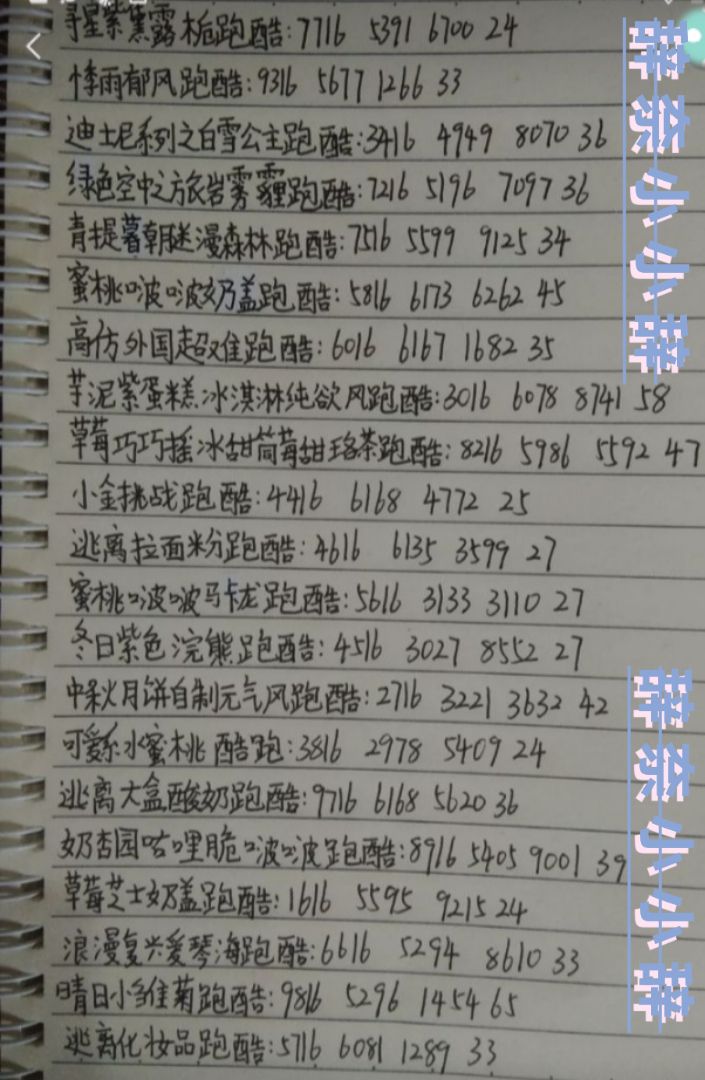 寻星紫薰露栀跑酷:7716 5391 6700 24
悸雨郁风跑酷:9316 5677 1266 33
迪士尼系列之白雪公主跑酷:3416 4949 8070 36
绿色空中之旅岩雾霾跑酷:7216 5196 7097 36
青提暮朝醚漫森林跑酷:7516 5599 9125 34
蜜桃啵啵奶盖跑酷:5816 6173 6262 45
高仿外国超难跑酷:6016 6167 1682 35
芋泥紫蛋糕冰淇淋纯欲风跑酷:3016 6078 8741 58
草莓巧巧摇冰甜筒莓甜珞茶跑酷:8216 5986 5592 47
小金挑战跑酷:4416 6168 4772 25
逃离拉面粉跑酷:4616 6135 3599 27
蜜桃啵啵马卡龙跑酷:5616 3133 3110 27
冬日紫色浣熊跑酷:4516 3027 8552 27
中秋月饼自制元气风跑酷:2716 3221 3632 42
可爱系水蜜桃酷跑:3816 2978 5409 24
逃离大盒酸奶跑酷:9716 6168 5620 36
奶杏园咕哩脆啵啵跑酷:8916 5405 9001 39
草莓芝士奶盖跑酷:1616 5595 9215 24
浪漫复兴爱琴海跑酷:6616 5294 8610 33
晴日小雏菊跑酷:9816 5296 1454 65
逃离化妆品跑酷:5716 6081 1289 33
辞奈小小辞
辞奈小小辞